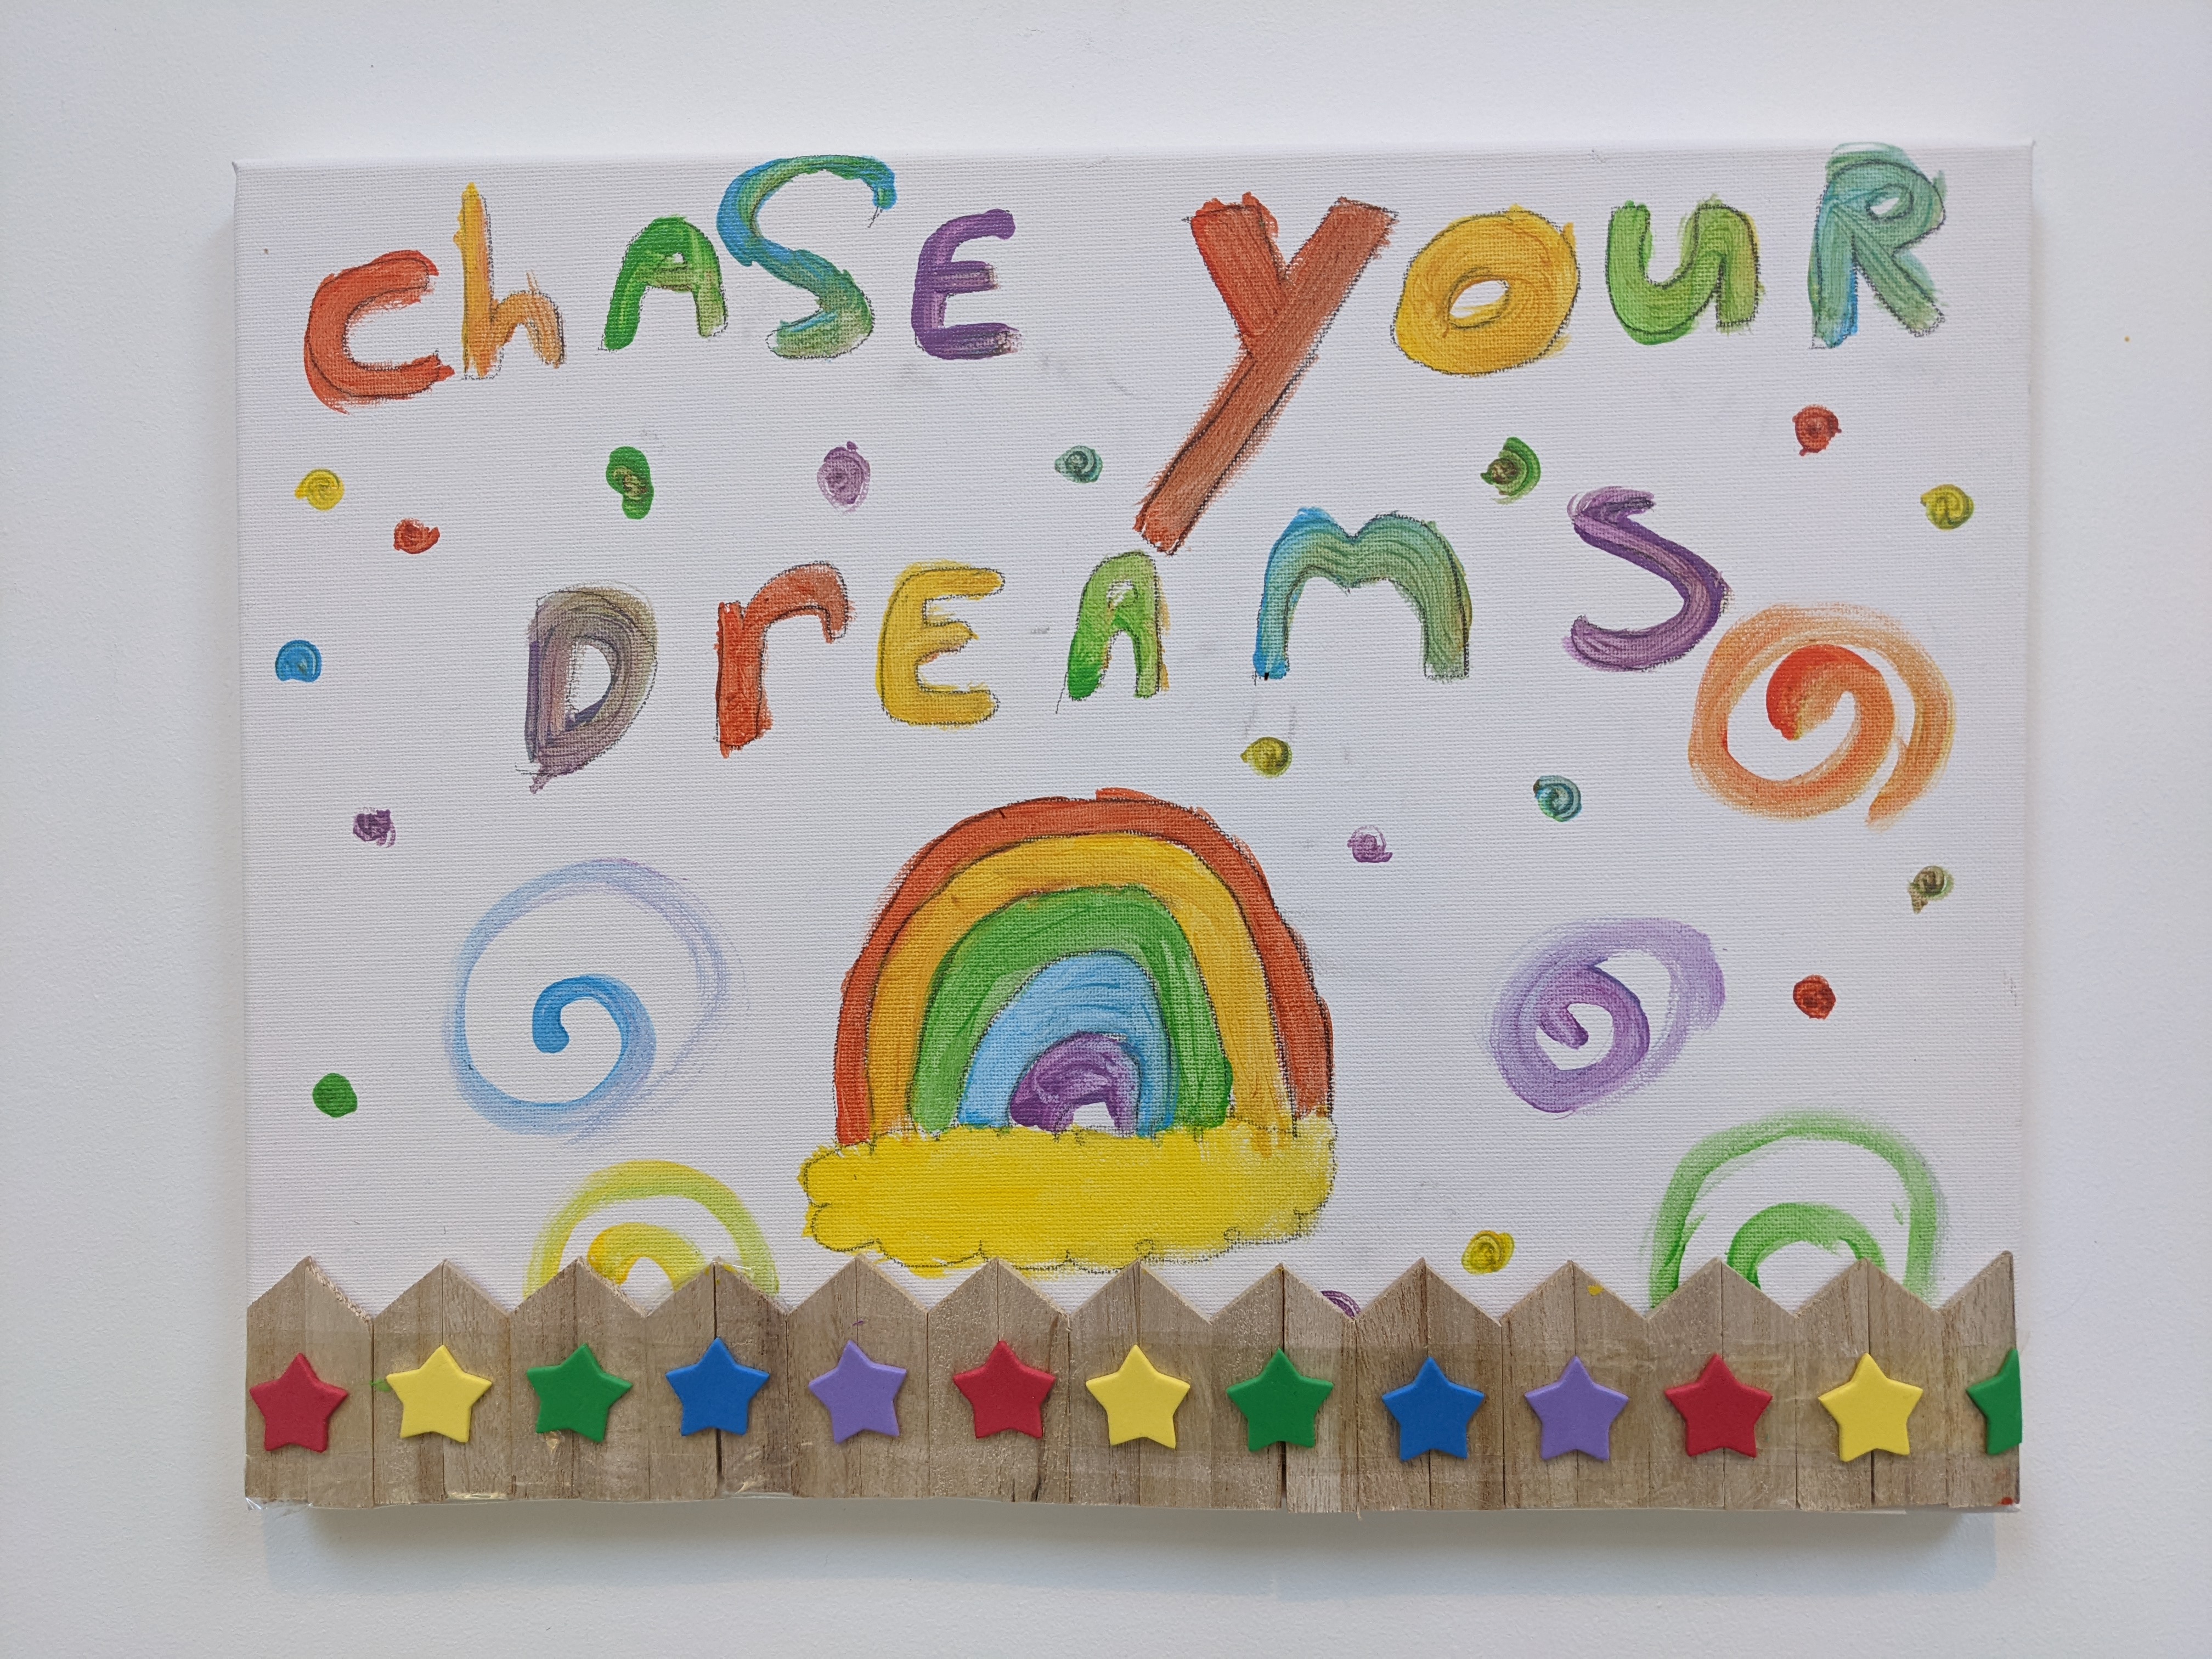 chASE youR
DrEAmS